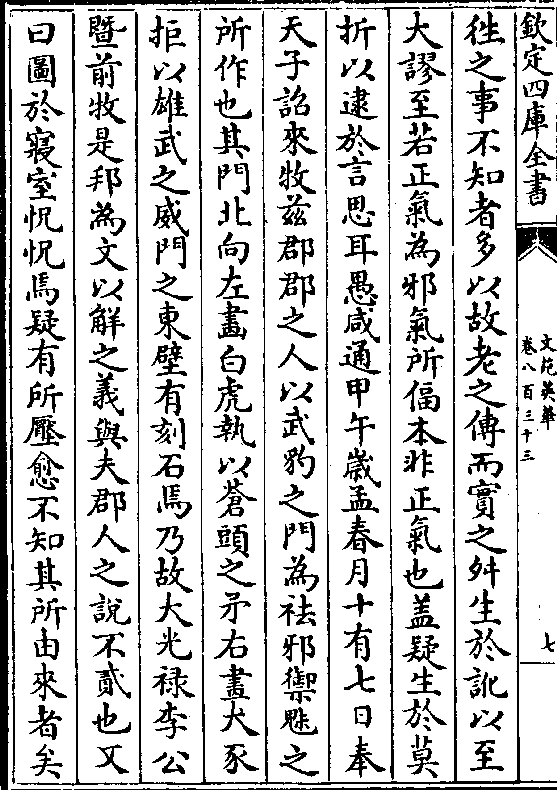 欽定四庫全書
文苑英華
卷八百三十三
七
徃之事不知者多以故老之傳而實之舛生於訛以至
大謬至若正氣為邪氣所偪本非正氣也盖疑生於莫
折以逮於言思耳愚咸通甲午歲孟春月十有七日奉
天子詔來牧兹郡郡之人以武豹之門為祛邪禦魅之
所作也其門北向左畫白虎執以蒼頭之矛右畫犬豕
拒以雄武之威門之東壁有刻石焉乃故大光禄李公
暨前牧是邦為文以解之義與夫郡人之說不貳也又
曰圖於寢室怳怳焉疑有所壓愈不知其所由來者矣